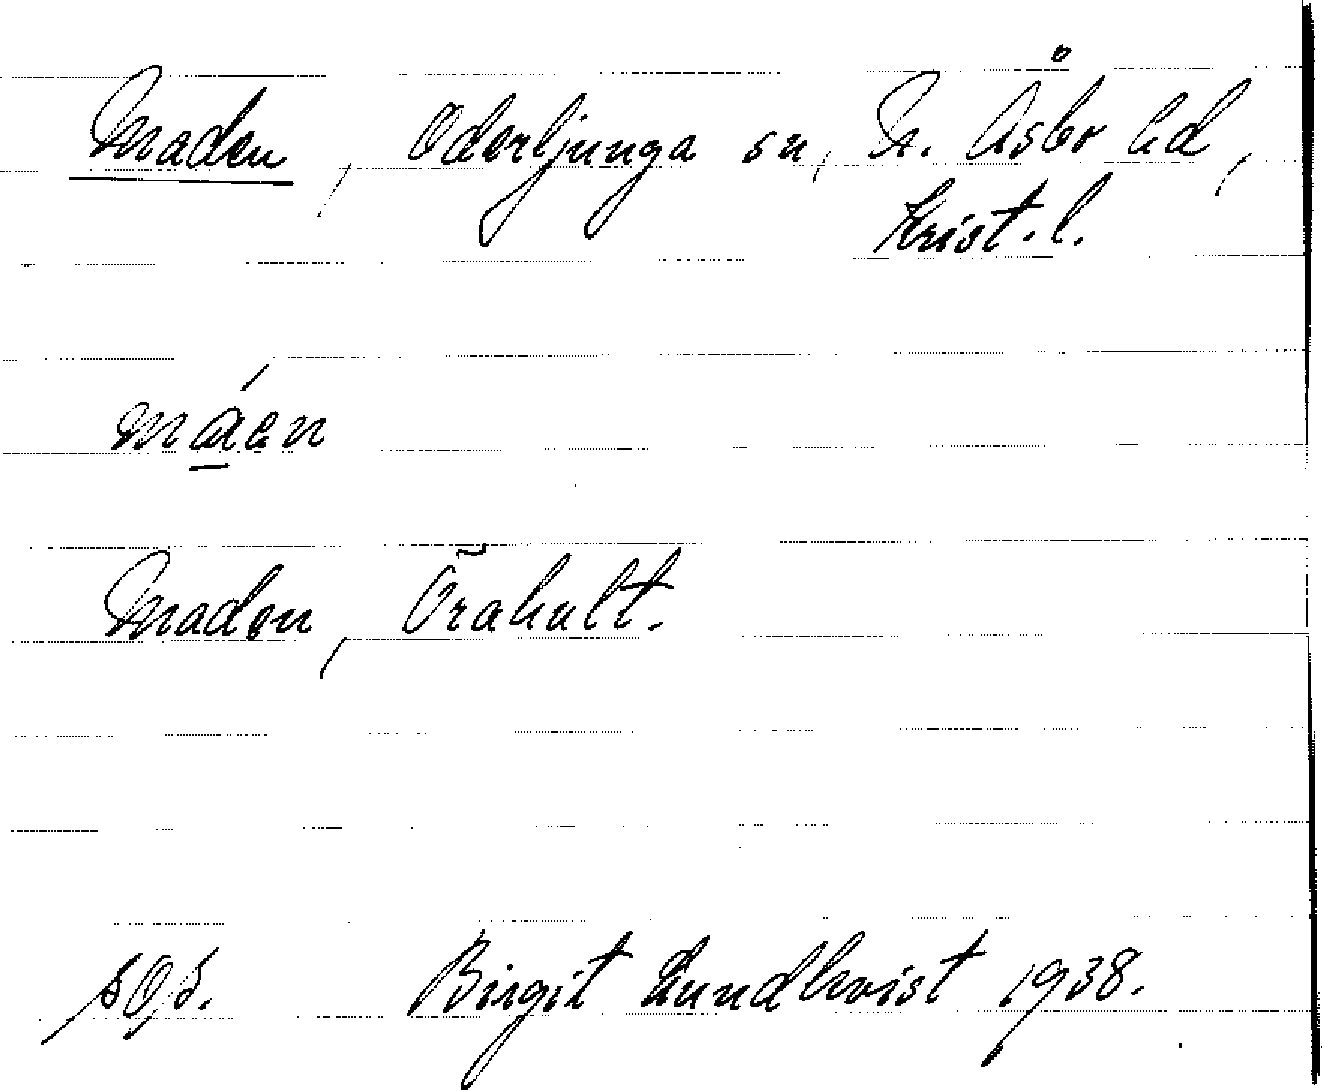 Maden, Oderljunga sn, N. Åsbo hd,
Krist. l.
máen
Maden, Örahult.
Birgit Lundkvist 1938.